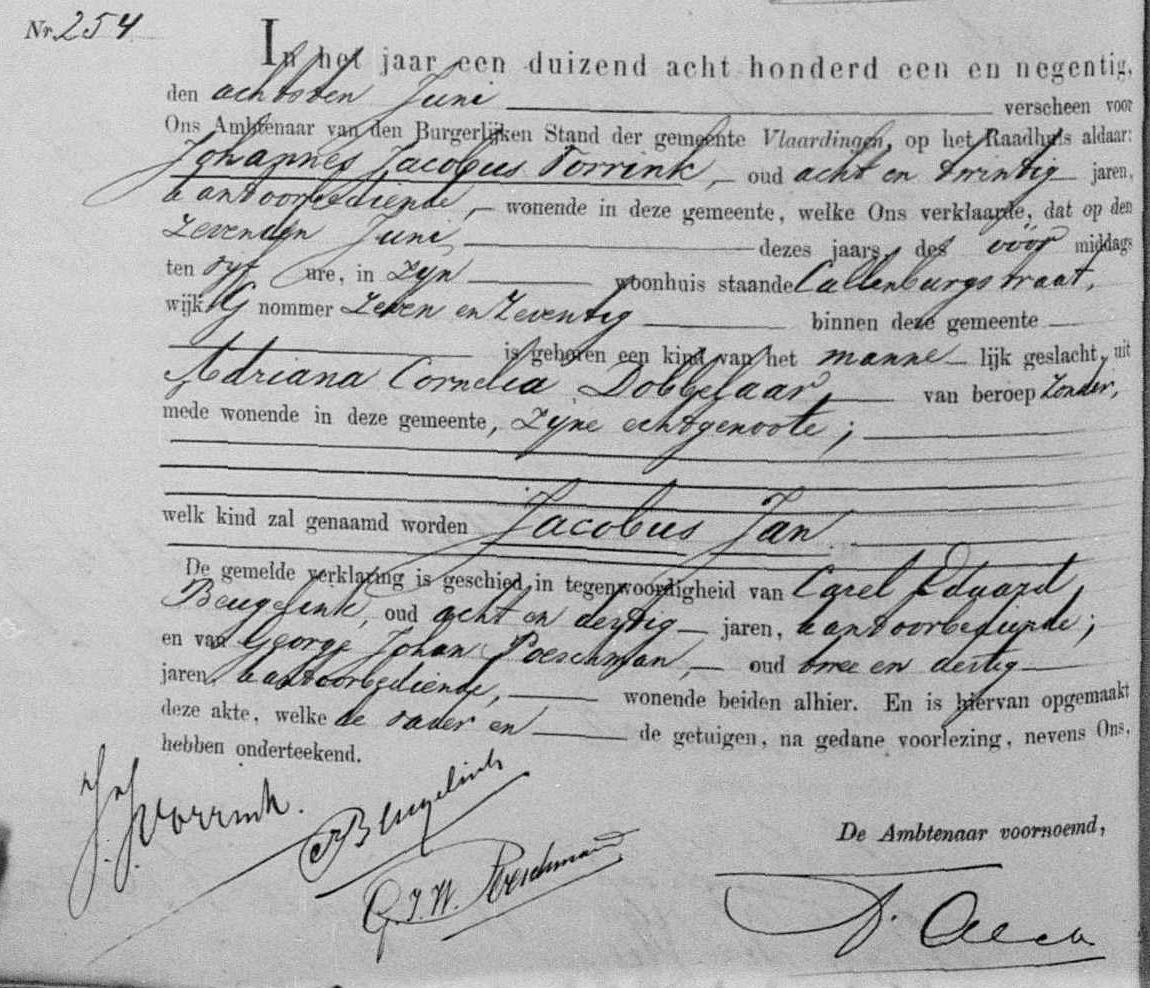 Nr. 254
In het jaar een duizend acht honderd een en negentig,
den achtsten Juni verscheen voor
Ons Ambtenaar van den Burgerlijken Stand der gemeente Vlaardingen, op het Raadhuis aldaar:
Johannes Jacobus Vorrink, oud acht en twintig jaren,
kantoorbediende, wonende in deze gemeente, welke Ons verklaarde, dat op den
zevenden Juni, dezes jaars, des voor middags
ten vyf ure, in zyn woonhuis staande Callenburgstraat,
wijk G nommer zeven en zeventig binnen deze gemeente
is geboren een kind van het manne lijk geslacht, uit
Adriana Cornelia Dobbelaar, van beroep zonder,
mede wonende in deze gemeente, zyne echtgenoote;
welk kind zal genaamd worden Jacobus Jan.
De gemelde verklaring is geschied in tegenwoordigheid van Carel Eduard
Beugelink, oud acht en dertig jaren, kantoorbediende;
en van George Johan Poeschman, oud twee en dertig
jaren, kantoorbediende, wonende beiden alhier. En is hiervan opgemaakt
deze akte, welke de vader en de getuigen, na gedane voorlezing, nevens Ons,
hebben onderteekend.
J. J. Vorrink.
Beugelink
G. J. W. Poeschman
De Ambtenaar voornoemd,